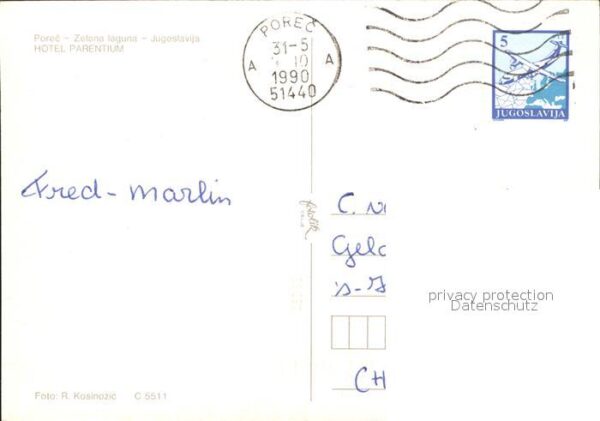 Poreč – Zelena laguna – Jugoslavija
HOTEL PARENTIUM
POREČ
31-5
10
A A
1990
51440
5
JUGOSLAVIJA
Fred - Marlin
C.
Gelo
CH
privacy protection
Datenschutz
Foto: R. Kosinožić C 5511